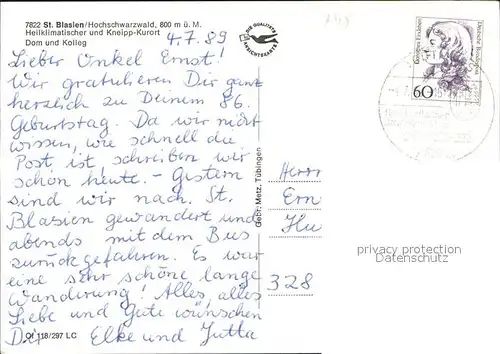 7822 St. Blasien/Hochschwarzwald, 800 m ü. M.
Heilklimatischer und Kneipp-Kurort
Dom und Kolleg
4.7.89
Lieber Onkel Ernst!
Wir gratulieren Dir ganz
herzlich zu Deinem 86.
Geburtstag. Da wir nicht
wissen, wie schnell die
Post ist schreiben wir
schon heute. - Gestern
sind wir nach St.
Blasien gewandert und
abends mit dem Bus
zurückgefahren. Es war
eine sehr schöne lange
Wanderung! Alles, alles
Liebe und Gute wünschen
Dir Elke und Jutta
Qf 118/297 LC
DIE QUALITÄTS
ANSICHTSKARTE
Gebr. Metz, Tübingen
Deutsche Bundespost
60
Herrn
Ern
Hu
328
privacy protection
Datenschutz